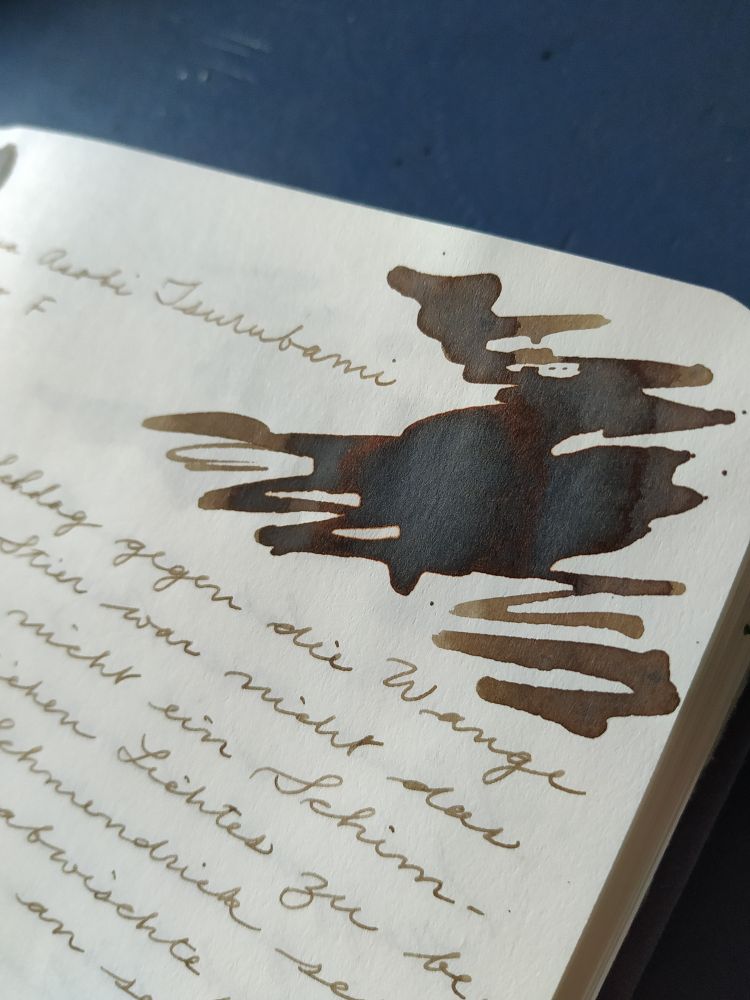 Asobi Tsurubami
F
gegen die Wange
Stier war nicht das
nicht ein Schim-
Lichtes zu be
Schmendrick se
abwischte
an se